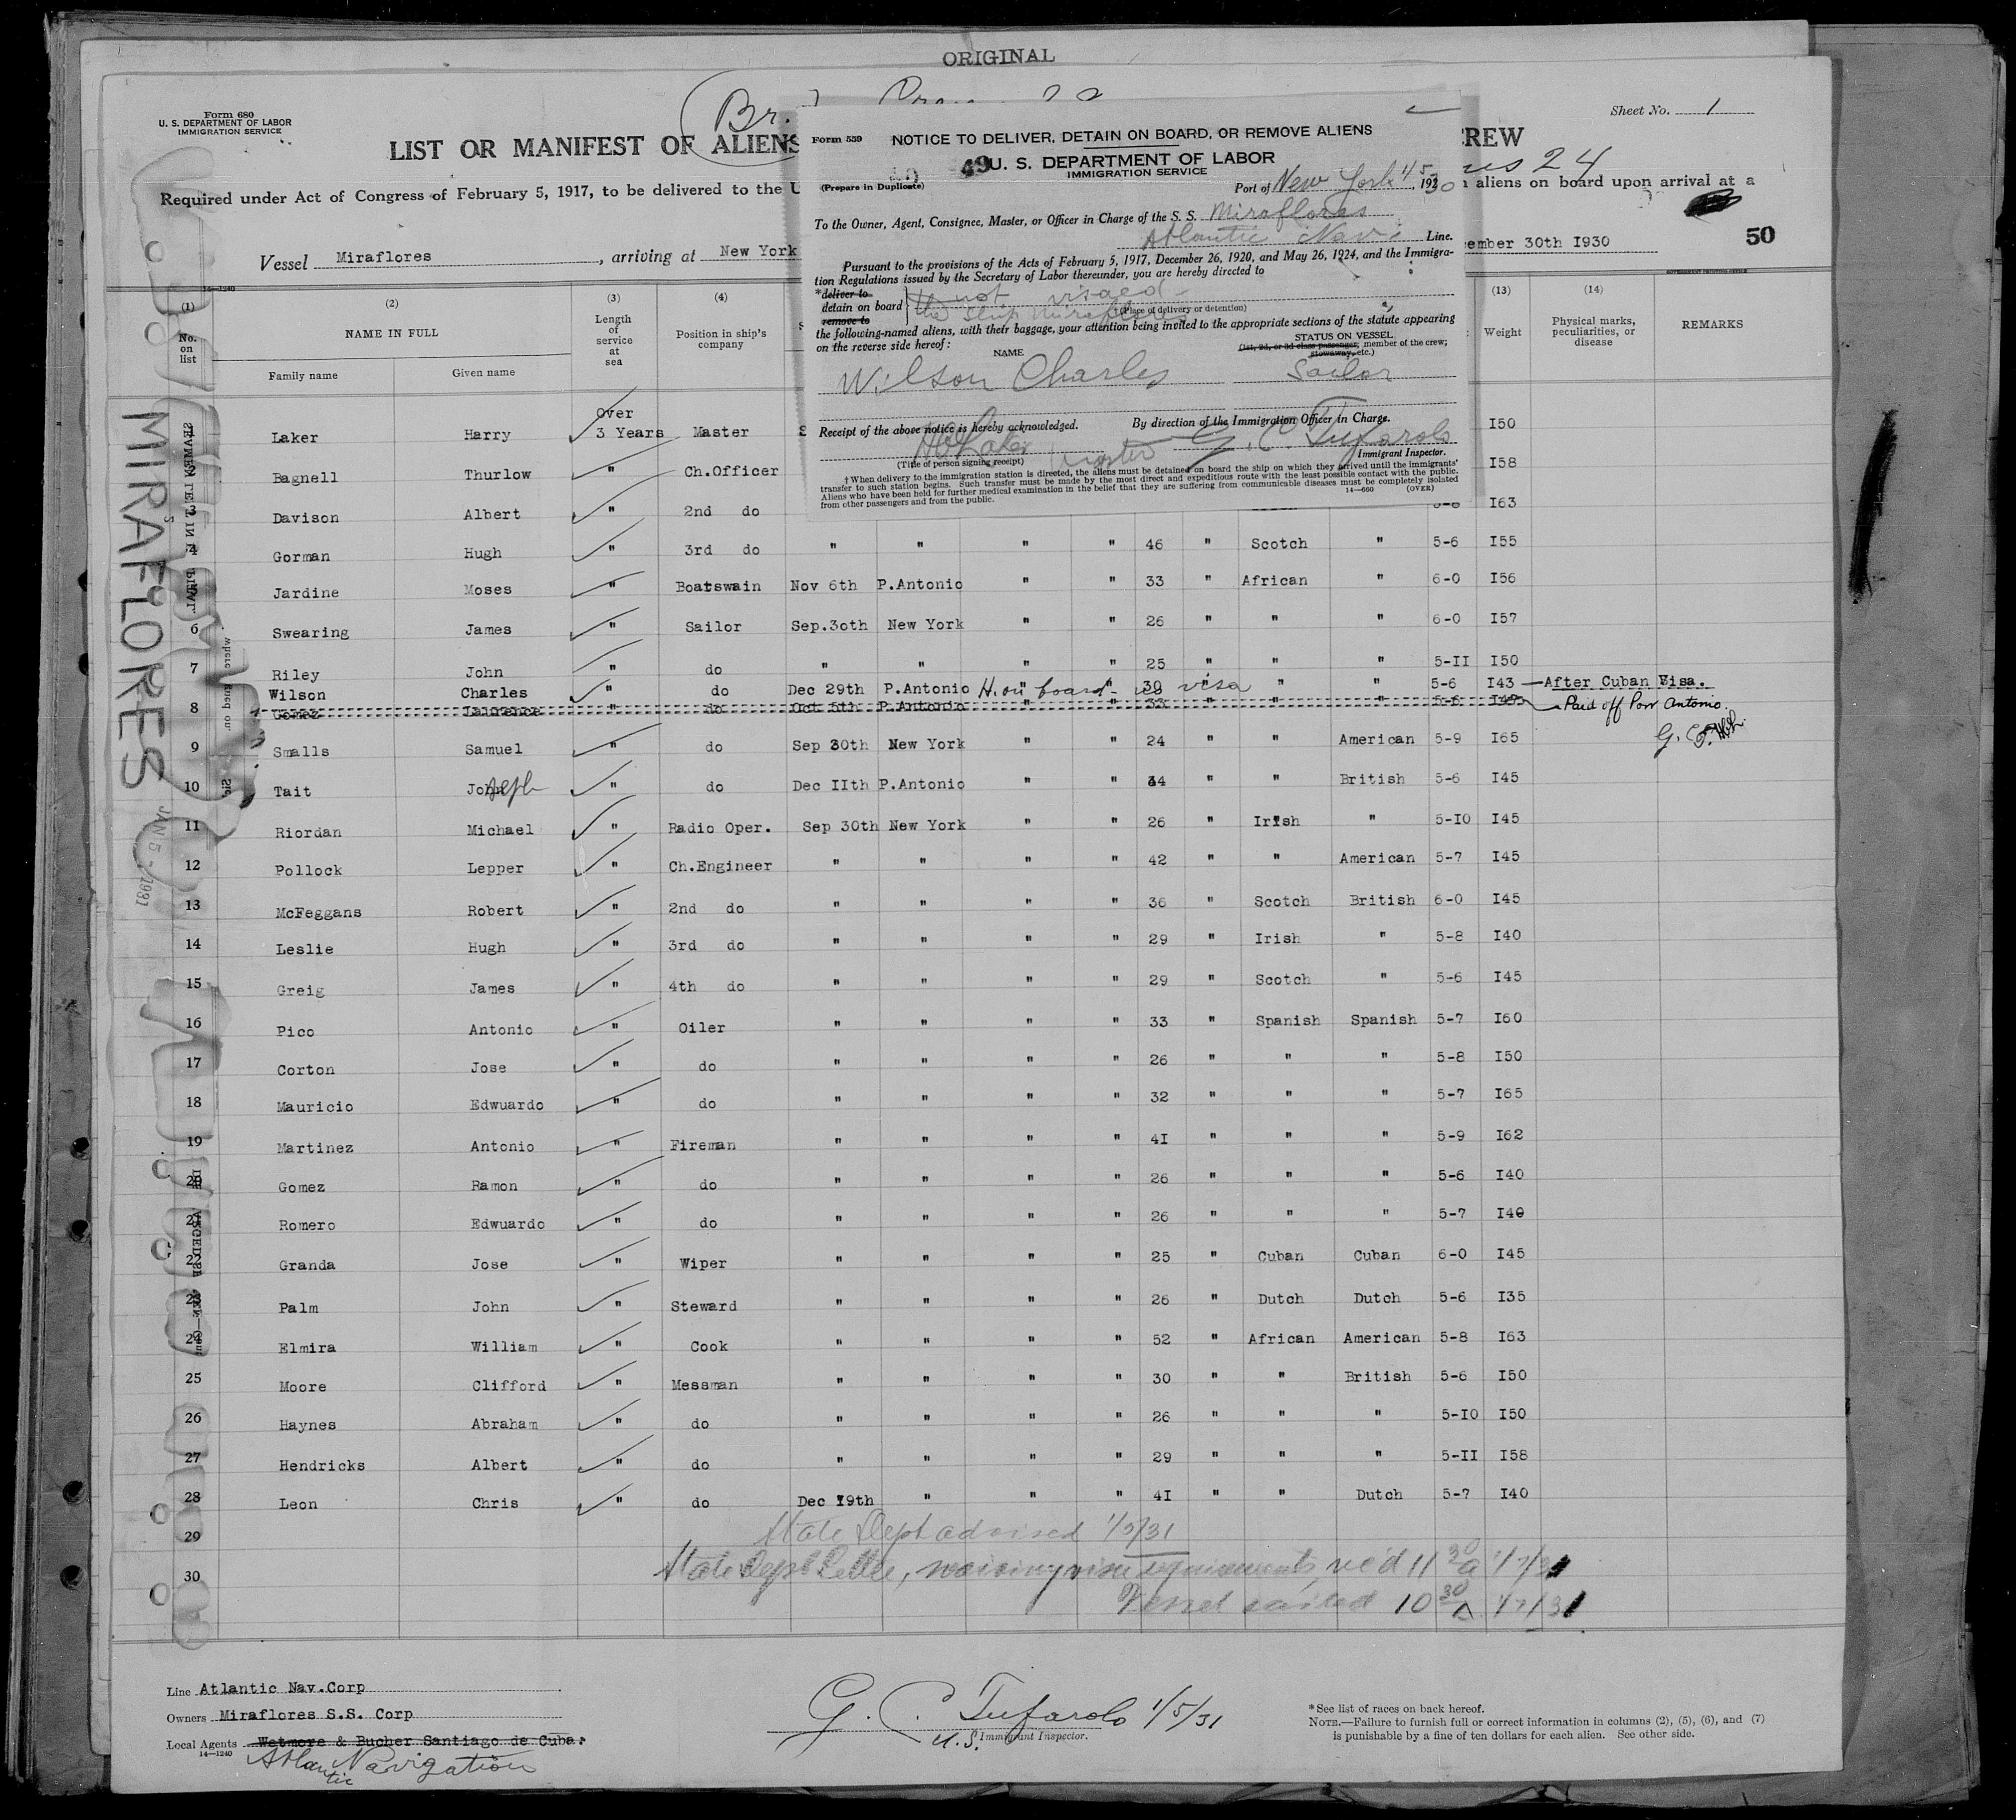 ORIGINAL
Form 680
U. S. DEPARTMENT OF LABOR
IMMIGRATION SERVICE
Br.
Sheet No. 1
LIST OR MANIFEST OF ALIENS
CREW
24
Required under Act of Congress of February 5, 1917, to be delivered to the U
aliens on board upon arrival at a
Vessel Miraflores, arriving at New York
cember 30th I930
50
Form 559
NOTICE TO DELIVER, DETAIN ON BOARD, OR REMOVE ALIENS
49
U. S. DEPARTMENT OF LABOR
IMMIGRATION SERVICE
(Prepare in Duplicate)
Port of New York 1/5, 1930
To the Owner, Agent, Consignee, Master, or Officer in Charge of the S. S. Miraflores
Atlantic Nav. Line.
Pursuant to the provisions of the Acts of February 5, 1917, December 26, 1920, and May 26, 1924, and the Immigra-
tion Regulations issued by the Secretary of Labor thereunder, you are hereby directed to
*deliver to
detain on board
remove to
not visaed
the ship Miraflores
(Place of delivery or detention)
the following-named aliens, with their baggage, your attention being invited to the appropriate sections of the statute appearing
on the reverse side hereof:
NAME
STATUS ON VESSEL
(1st, 2d, or 3d class passenger, member of the crew;
stowaway, etc.)
Wilson Charles Sailor
Receipt of the above notice is hereby acknowledged.
By direction of the Immigration Officer in Charge.
H Laker Master
G. C. Tufarolo
(Title of person signing receipt)
Immigrant Inspector.
† When delivery to the immigration station is directed, the aliens must be detained on board the ship on which they arrived until the immigrants'
transfer to such station begins. Such transfer must be made by the most direct and expeditious route with the least possible contact with the public.
Aliens who have been held for further medical examination in the belief that they are suffering from communicable diseases must be completely isolated
from other passengers and from the public.
14—660 (OVER)
14—1240
(1) (2) (3) (4) (13) (14)
No. on list
NAME IN FULL
Family name Given name
Length of service at sea
Position in ship's company
Weight
Physical marks, peculiarities, or disease
REMARKS
MIRAFLORES
JAN 5 - 1931
Laker Harry Over 3 Years Master I50
Bagnell Thurlow " Ch.Officer I58
3 Davison Albert " 2nd do I63
4 Gorman Hugh " 3rd do " " " " 46 " Scotch " 5-6 I55
Jardine Moses " Boatswain Nov 6th P.Antonio " " 33 " African " 6-0 I56
6 Swearing James " Sailor Sep.3oth New York " " 26 " " " 6-0 I57
7 Riley John " do " " " " 25 " " " 5-II I50
Wilson Charles " do Dec 29th P.Antonio " H. on board - no visa 30 " " " 5-6 I43 After Cuban Visa.
8 Gomez Laurence " do Oct 5th P.Antonio " " 33 " " " 5-6 I45 Paid off Port Antonio.
G. C. T.
9 Smalls Samuel " do Sep 30th New York " " 24 " " American 5-9 I65
10 Tait John Joseph " do Dec IIth P.Antonio " " 34 " " British 5-6 I45
11 Riordan Michael " Radio Oper. Sep 30th New York " " 26 " Irish " 5-IO I45
12 Pollock Lepper " Ch.Engineer " " " " 42 " " American 5-7 I45
13 McFeggans Robert " 2nd do " " " " 36 " Scotch British 6-0 I45
14 Leslie Hugh " 3rd do " " " " 29 " Irish " 5-8 I40
15 Greig James " 4th do " " " " 29 " Scotch " 5-6 I45
16 Pico Antonio " Oiler " " " " 33 " Spanish Spanish 5-7 I60
17 Corton Jose " do " " " " 26 " " " 5-8 I50
18 Mauricio Edwuardo " do " " " " 32 " " " 5-7 I65
19 Martinez Antonio " Fireman " " " " 4I " " " 5-9 I62
20 Gomez Ramon " do " " " " 26 " " " 5-6 I40
21 Romero Edwuardo " do " " " " 26 " " " 5-7 I40
22 Granda Jose " Wiper " " " " 25 " Cuban Cuban 6-0 I45
23 Palm John " Steward " " " " 26 " Dutch Dutch 5-6 I35
24 Elmira William " Cook " " " " 52 " African American 5-8 I63
25 Moore Clifford " Messman " " " " 30 " " British 5-6 I50
26 Haynes Abraham " do " " " " 26 " " " 5-IO I50
27 Hendricks Albert " do " " " " 29 " " " 5-II I58
28 Leon Chris " do Dec I9th " " " 4I " " Dutch 5-7 I40
29 State Dept advised 1/5/31
30 State Dept Letter, waiving visa requirements, rec'd 11 30 a 1/7/31
Vessel sailed 10 30 A 1/7/31
Line Atlantic Nav.Corp
Owners Miraflores S.S. Corp
Local Agents Wetmore & Bucher Santiago de Cuba.
14—1240
Atlantic Navigation
G. C. Tufarolo 1/5/31
U.S. Immigrant Inspector.
*See list of races on back hereof.
NOTE.—Failure to furnish full or correct information in columns (2), (5), (6), and (7)
is punishable by a fine of ten dollars for each alien. See other side.